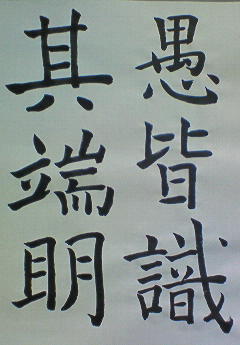 愚皆識
其端明